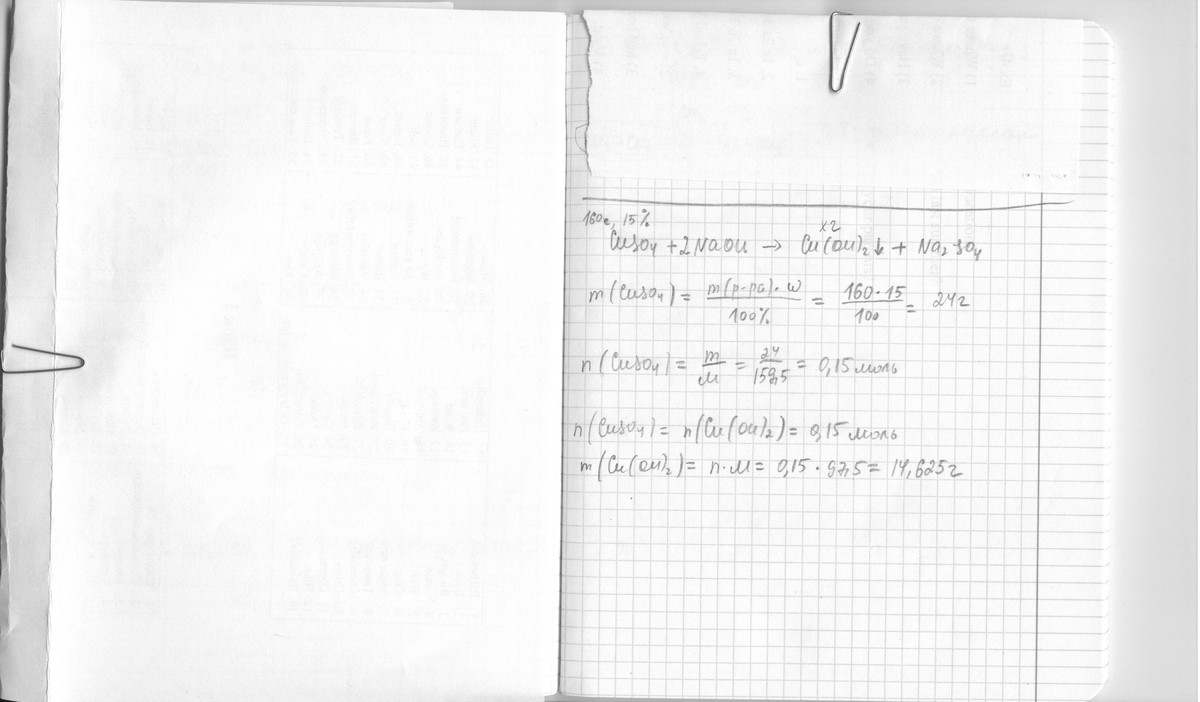 160г, 15%   х г
CuSO₄ + 2NaOH → Cu(OH)₂↓ + Na₂SO₄
m(CuSO₄) = m(р-ра)·ω / 100% = 160·15 / 100 = 24г
n(CuSO₄) = m / M = 24 / 159,5 = 0,15 моль
n(CuSO₄) = n(Cu(OH)₂) = 0,15 моль
m(Cu(OH)₂) = n·M = 0,15 · 97,5 = 14,625г